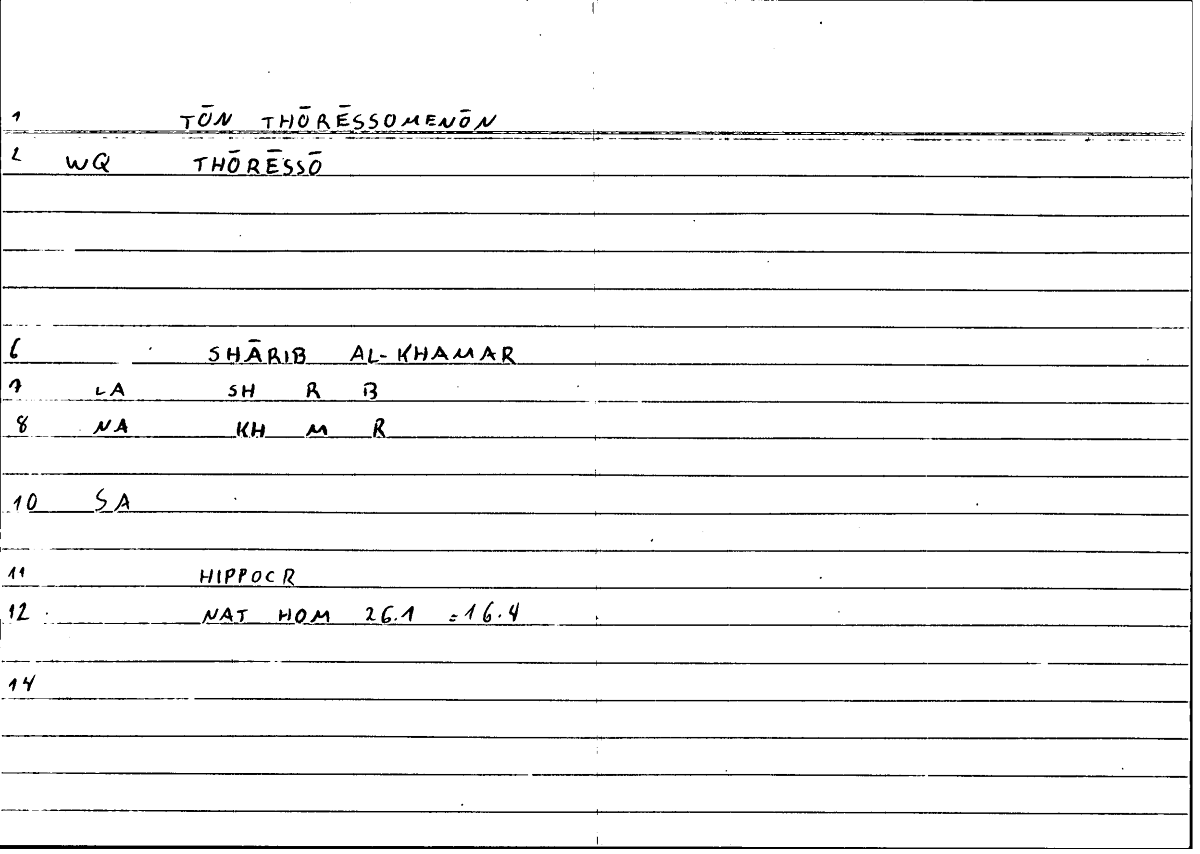 1 TŌN THŌRĒSSOMENŌN
2 WQ THŌRĒSSŌ
6 SHĀRIB AL-KHAMAR
7 LA SH R B
8 NA KH M R
10 SA
11 HIPPOCR
12 NAT HOM 26.1 =16.4
14